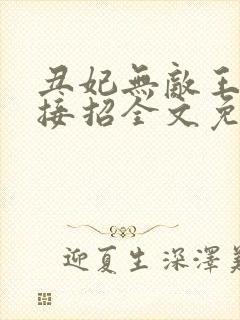 丑妃無敵王
接招全文免
迎夏生 深澤